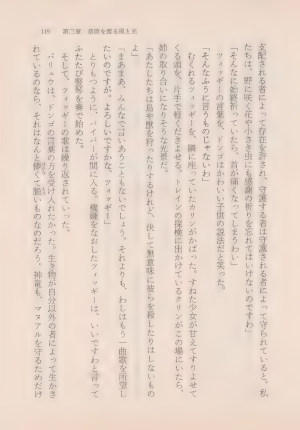 119　第三章　草原を渡る風と光
支配される者によって存在を許され、守護する者は守護される者によって守られていると、私
たちは、野に咲く花や小さき虫にも感謝の祈りを忘れてはいけないのですわ」
「そんなに始終祈っていたら、首が痛くなってしまうわい」
フィッギーの言葉を、ドンゴはかわいい子供の説法だと笑った。
「そんなふうに言うものじゃないわ」
むくれるフィッギーを、隣に座っていたカリンがかばった。すねた少女が甘えてすりよせて
くる頭を、片手で軽くだきよせる。トレインの探検に出かけているクリンがこの場にいたら、
姉の取り合いになりそうな光景だ。
「あたしたちは鳥や獣を狩ったりするけれど、決して無意味に彼らを殺したりはしないもの
よ」
「まあまあ、みんなで言いあうこともないでしょう。それよりも、わしはもう一曲歌を所望し
たいのですが、よろしいですかな、フィッギー」
とりもつように、パイパーが間に入る。機嫌をなおしたフィッギーは、いいですわと言って
ふたたび竪琴を奏で始めた。
そして、フィッギーの歌は繰り返されていった。
バリュウは、ドンゴの言葉の方を受け入れたかった。生き物が自分以外の者によって生かさ
れているのなら、それはなんと儚くて脆いものなのだろう。神竜も、マヌアルを守るためだけ